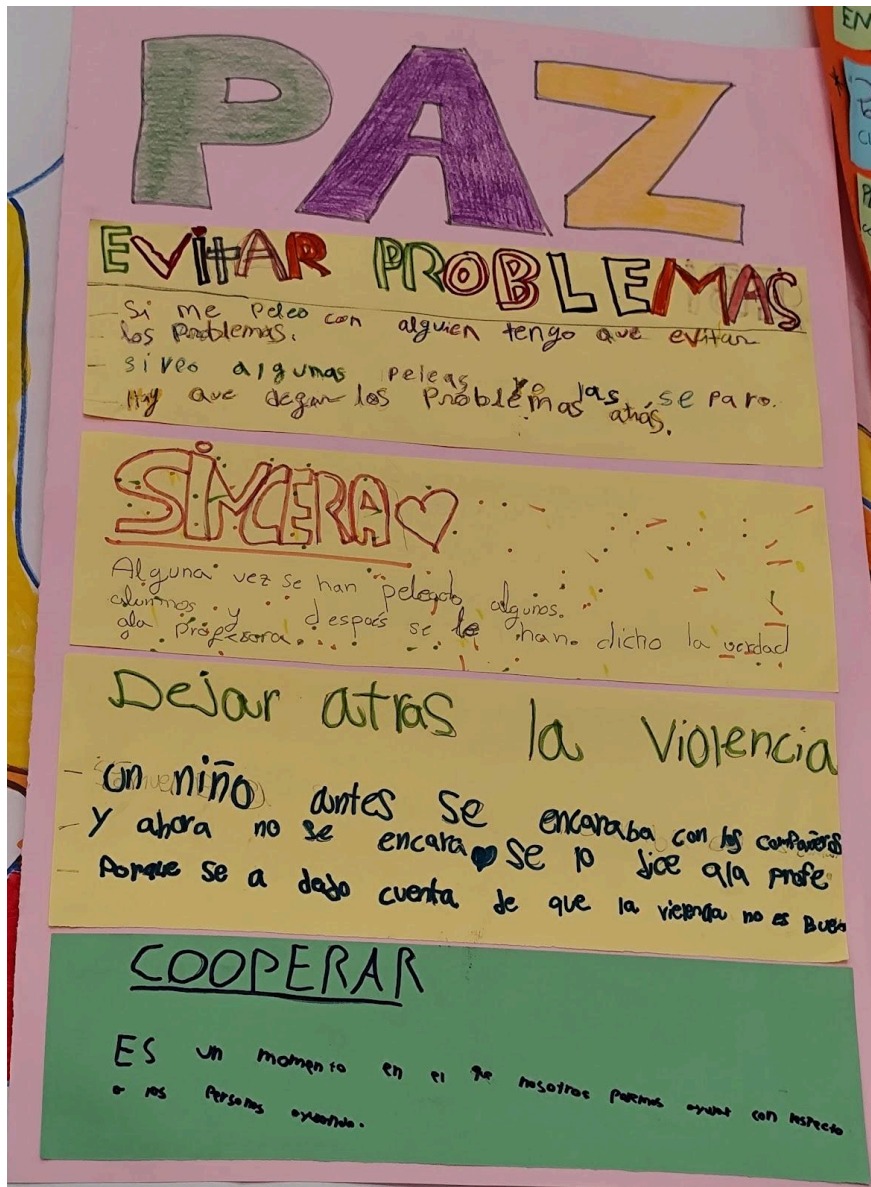 PAZ
EVITAR PROBLEMAS
- Si me peleo con alguien tengo que evitar
los problemas.
- si veo algunas peleas yo las se paro.
- Hay que degar los problemas atrás.
SINCERA
Alguna vez se han peleado algunos.
alumnos y despues se le han dicho la verdad
ala profesora.
Dejar atras la Violencia
- un niño antes se encaraba con los compañeros
- Y ahora no se encara se lo dice ala profe
- Porque se a dado cuenta de que la violencia no es Buena
COOPERAR
ES un momento en el que nosotros podemos ayudar con respecto
a las Personas ayudando.
EN